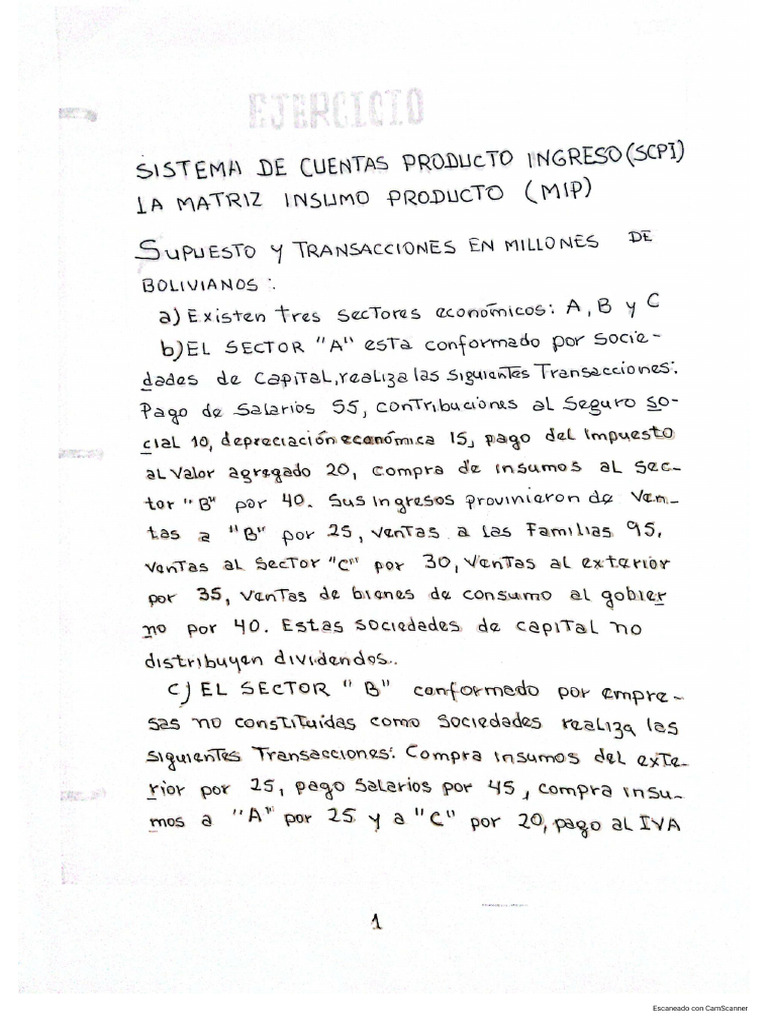 EJERCICIO
SISTEMA DE CUENTAS PRODUCTO INGRESO (SCPI)
LA MATRIZ INSUMO PRODUCTO (MIP)
SUPUESTO Y TRANSACCIONES EN MILLONES DE
BOLIVIANOS:
a) Existen tres sectores económicos: A, B y C
b) EL SECTOR "A" esta conformado por socie-
dades de capital, realiza las siguientes Transacciones:
Pago de Salarios 55, contribuciones al Seguro so-
cial 10, depreciación económica 15, pago del impuesto
al valor agregado 20, compra de insumos al sec-
tor "B" por 40. Sus ingresos provinieron de ven-
tas a "B" por 25, ventas a las familias 95,
ventas al sector "C" por 30, ventas al exterior
por 35, ventas de bienes de consumo al gobier
no por 40. Estas sociedades de capital no
distribuyen dividendos..
c) EL SECTOR "B" conformado por empre-
sas no constituídas como sociedades realiza las
siguientes Transacciones: Compra insumos del exte-
rior por 25, pago salarios por 45, compra insu-
mos a "A" por 25 y a "C" por 20, pago al IVA
1
Escaneado con CamScanner